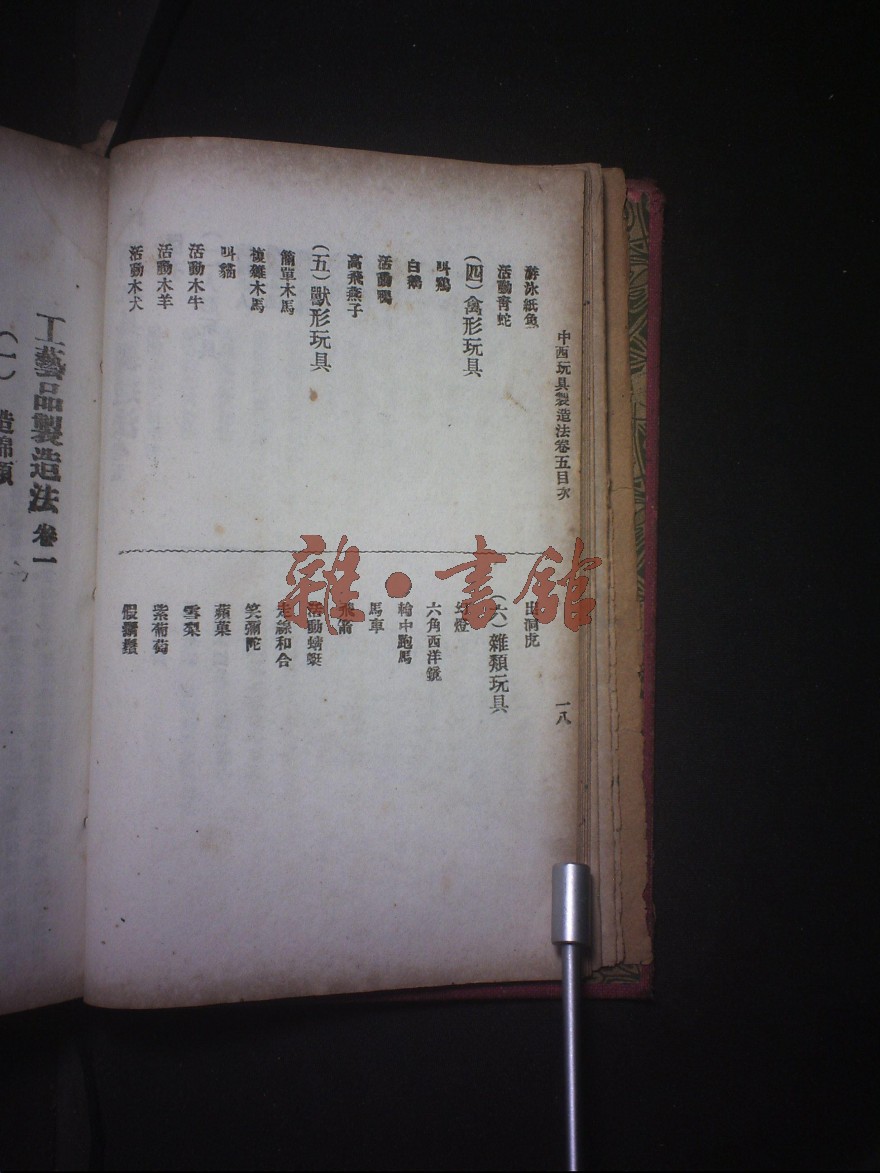 中西玩具製造法卷五目次
一八
游泳紙魚
活動青蛇
(四)禽形玩具
叫鷄
白鵝
活動鴨
高飛燕子
(五)獸形玩具
簡單木馬
複雜木馬
叫貓
活動木牛
活動木羊
活動木犬
出洞虎
(六)雜類玩具
幻燈
六角西洋鏡
輪中跑馬
馬車
飛箭
活動蜻蜓
走線和合
笑彌陀
蘋菓
雪梨
紫葡萄
假鬍鬚
工藝品製造法 卷一
(一) 造綿類
雜·書館